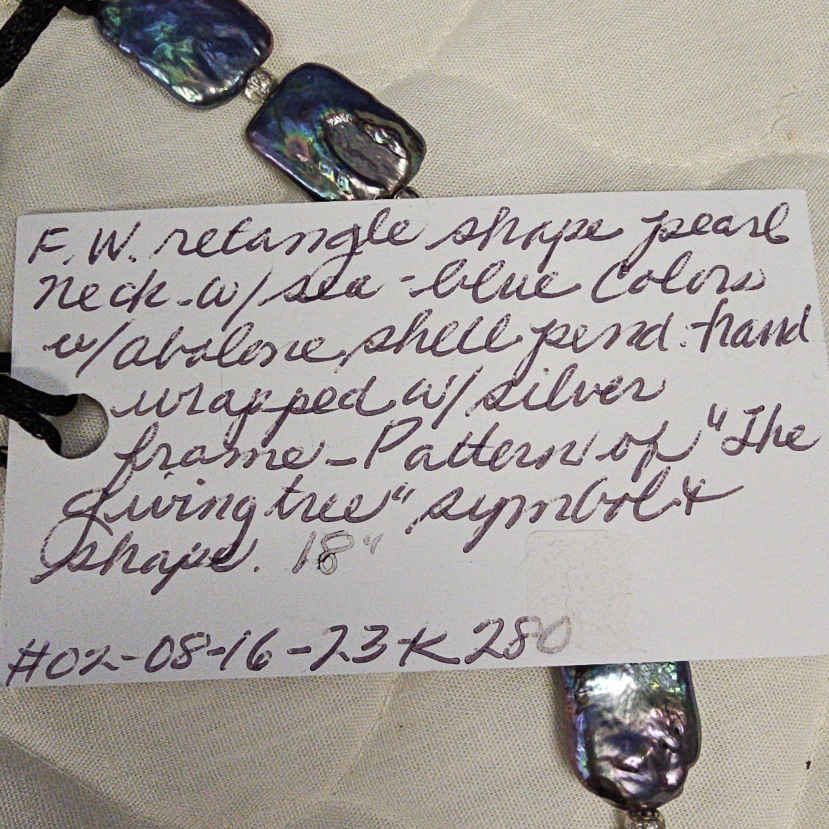 F.W. retangle shape pearl
neck w/ sea-blue colors
w/abalone shell pend. hand
wrapped w/ silver
frame - Pattern of "The
Living tree" symbol &
shape. 18"
#02-08-16-23-K 280